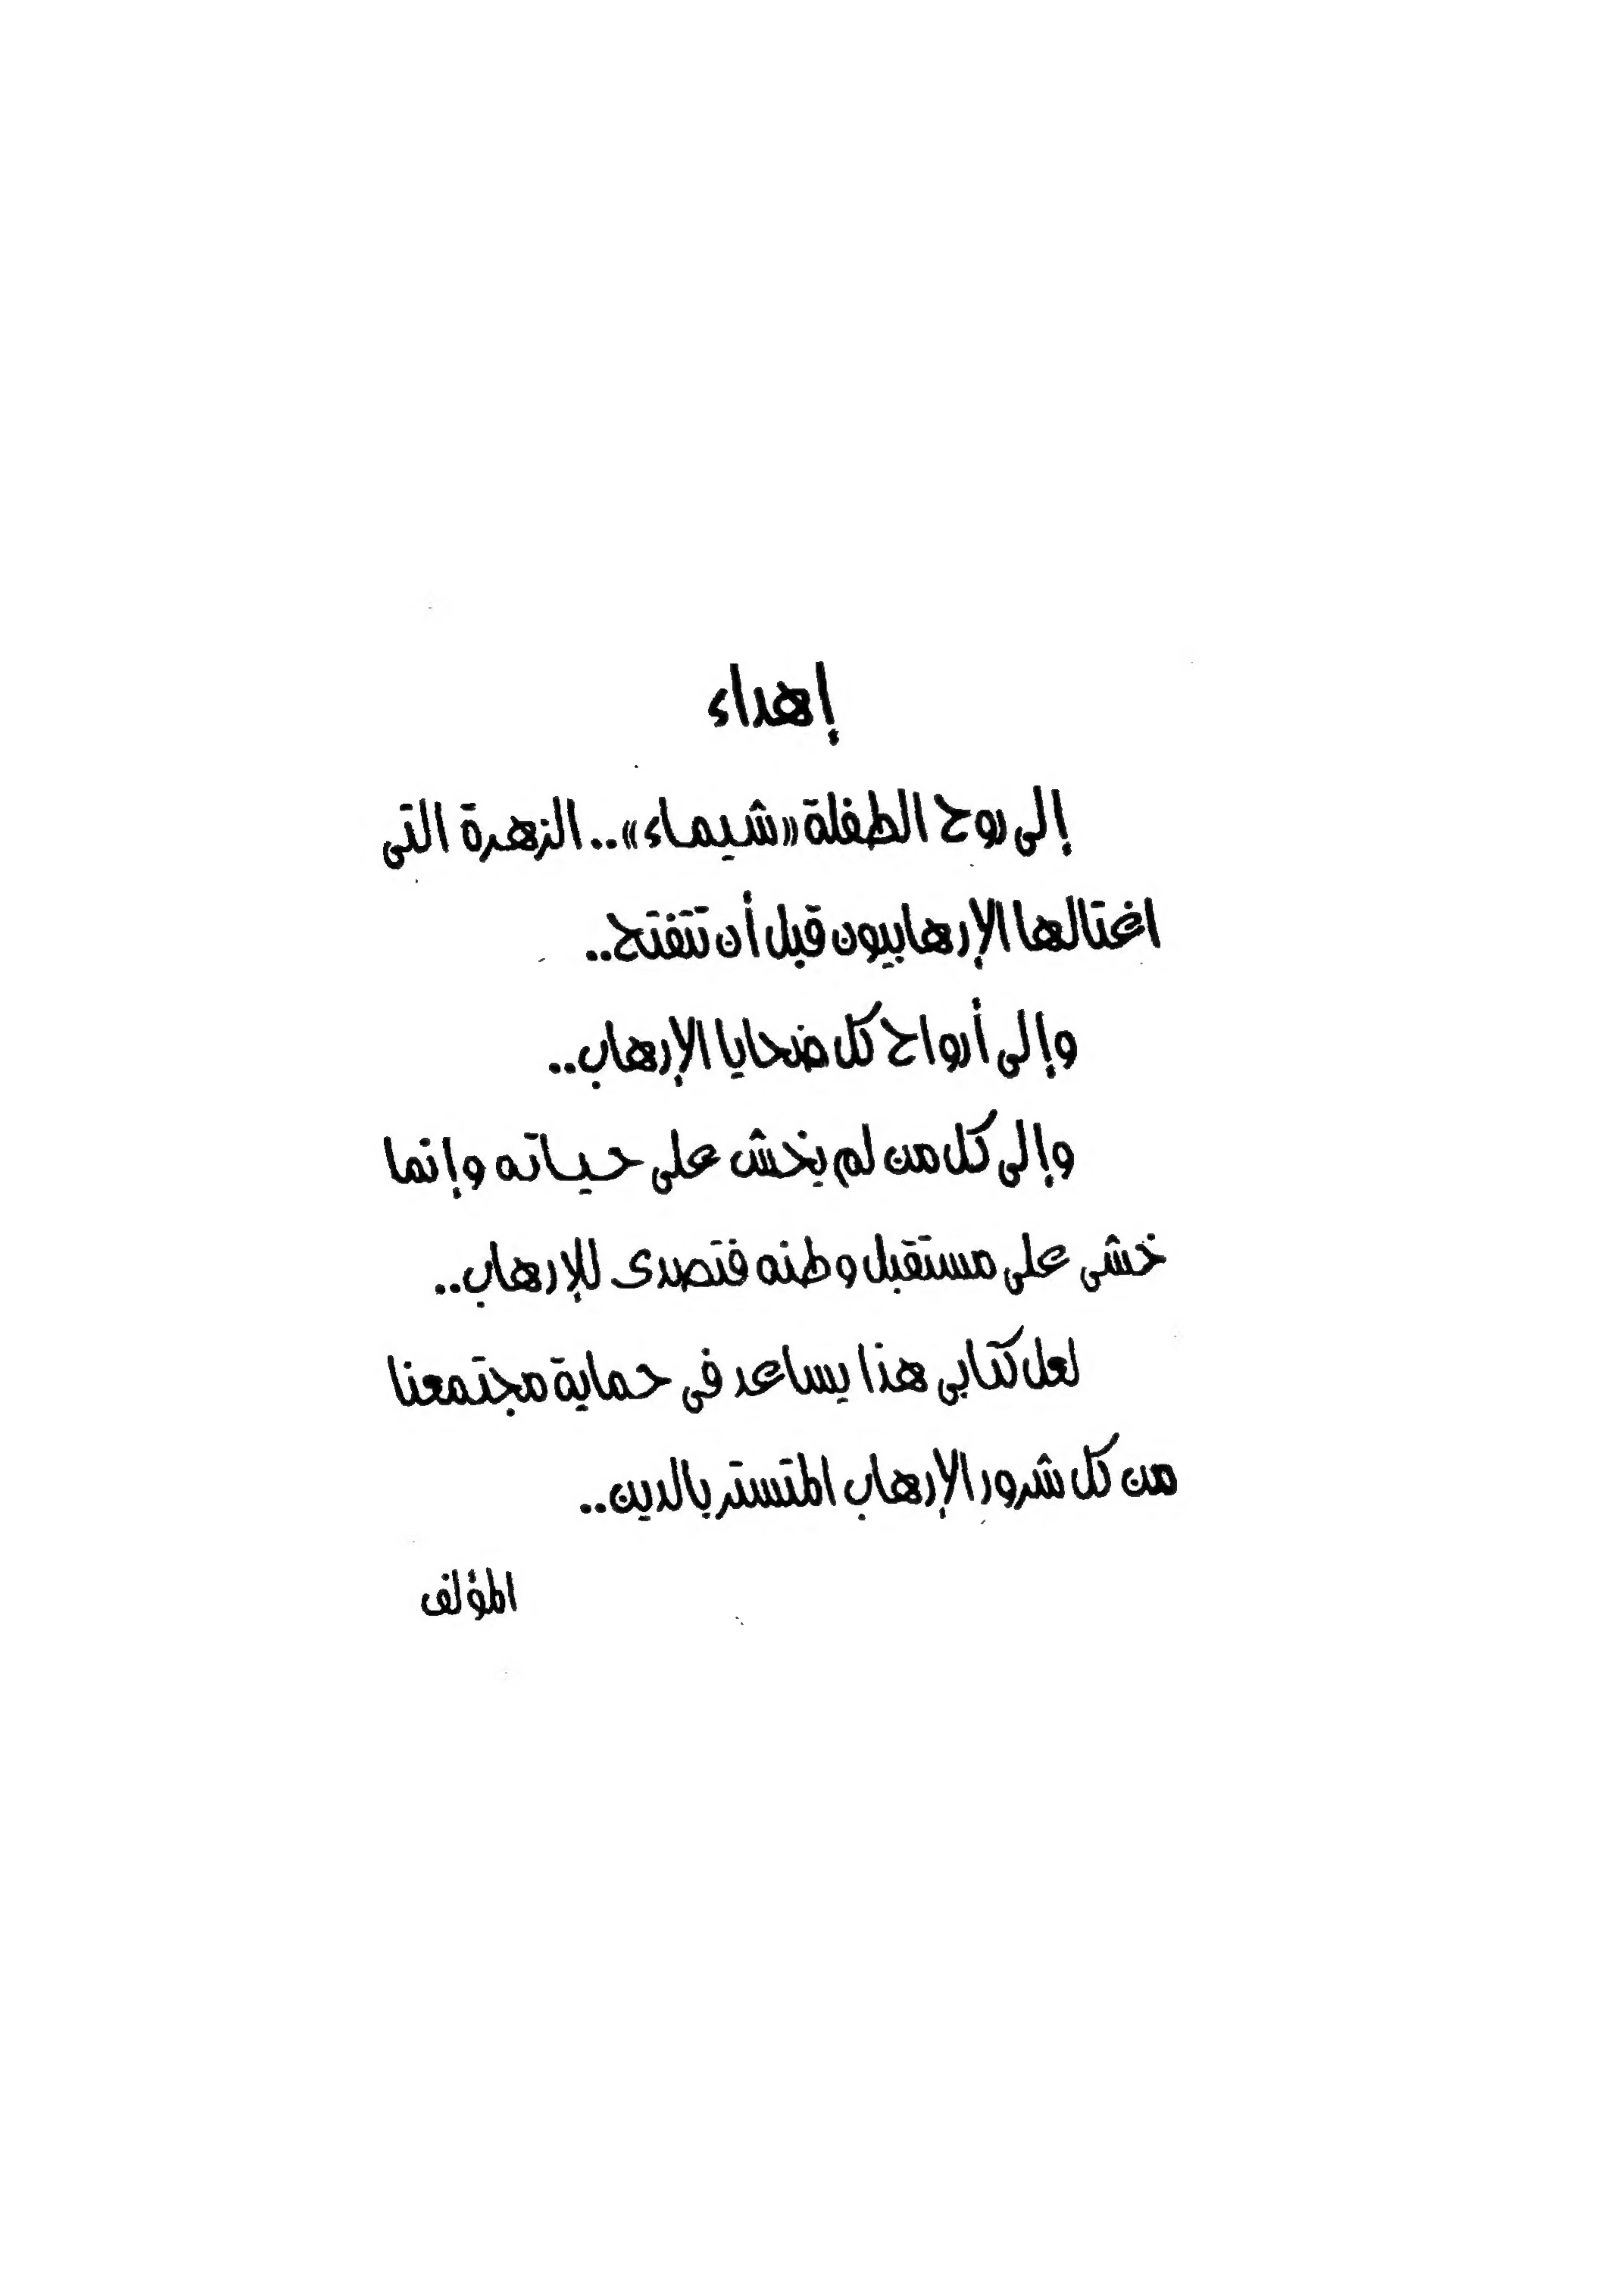 إهداء
إلى روح الطفلة «شيماء».. الزهرة التى
اغتالها الإرهابيون قبل أن تتفتح..
وإلى أرواح كل ضحايا الإرهاب..
وإلى كل من لم يخش على حياته وإنما
خشى على مستقبل وطنه فتصدى للإرهاب..
لعل كتابى هذا يساعد فى حماية مجتمعنا
من كل شرور الإرهاب المتستر بالدين..
المؤلف